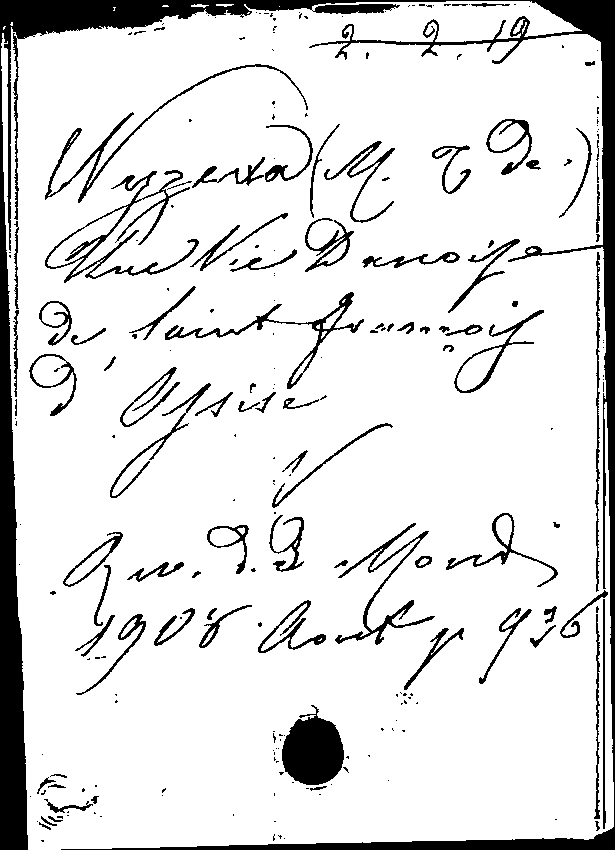 2. 2. 19
Wyzewa (M. T. de.)
Une Vie Danoise
de Saint François
d'Assise
Rev. d. 2 Mond
1908 Aout p 936